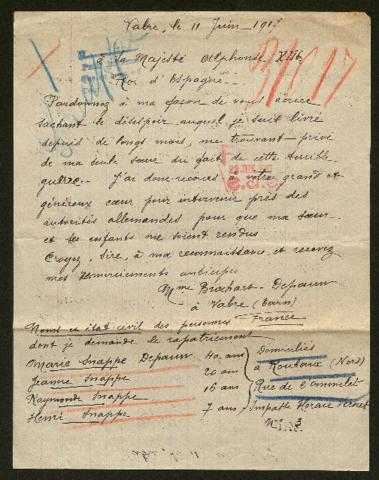 Vabre, le 11 Juin 1917
à sa Majesté Alphonse XIII,
Roi d'Espagne.
Pardonnez à ma façon de vous écrire
sachant le désespoir auquel je suis livré
depuis de longs mois, me trouvant privé
de ma seule sœur du fait de cette terrible
guerre. J'ai donc recours à votre grand et
généreux cœur pour intervenir près des
autorités allemandes pour que ma sœur
et ses enfants me soient rendus
Croyez, Sire, à ma reconnaissance et recevez
mes remerciements anticipés
Mme Brochart-Depauw
à Vabre (Tarn)
France
Noms et état civil des personnes
dont je demande le rapatriement
Marie Snappe Depauw 40 ans
Jeanne Snappe 20 ans
Raymonde Snappe 16 ans
Henri Snappe 7 ans
Domiciliés
à Roubaix (Nord)
Rue de l'ommelet
Impasse Horace Vernet
N° 3